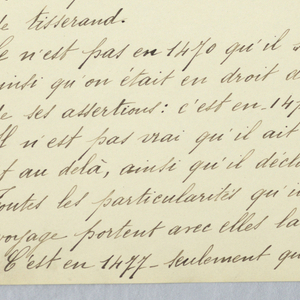 de tisserand.
Ce n'est pas en 1470 qu'il s
ainsi qu'on était en droit d
de ses assertions: c'est en 147
Il n'est pas vrai qu'il ait
et au delà, ainsi qu'il décl
Toutes les particularités qu'i
voyage portent avec elles la
C'est en 1477 - seulement qu